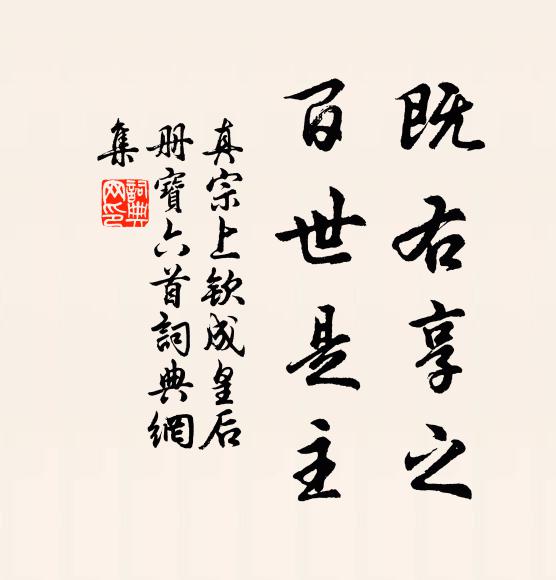 既右享之
百世是主
真宗上钦成皇后
册寶六首詞典網
集
詞典網印